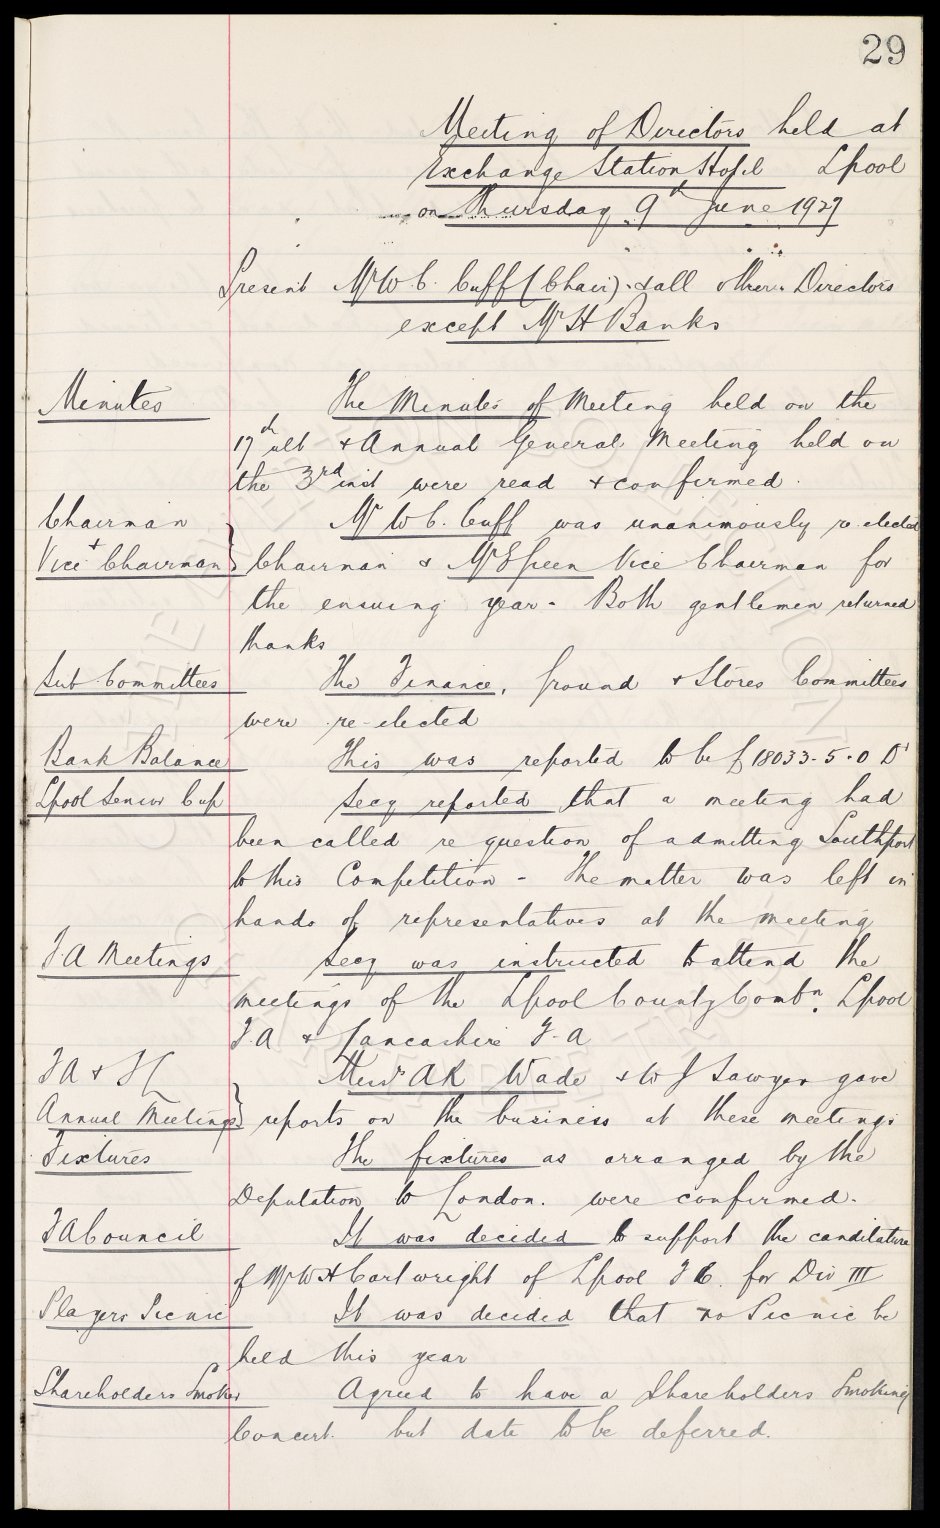 29
Meeting of Directors held at
Exchange Station Hotel Lpool
on Thursday 9th June 1927
Present Mr W. C. Cuff (Chair) & all other Directors
except Mr H Banks
Minutes The Minutes of Meeting held on the
17th ult & Annual General Meeting held on
the 3rd inst were read & confirmed.
Chairman Mr W C. Cuff was unanimously re-elected
+
Vice Chairman } Chairman & Mr E Green Vice Chairman for
the ensuing year - Both gentlemen returned
thanks
Sub Committees The Finance, Ground & Stores Committees
were re-elected
Bank Balance This was reported to be £18033-5-0 Dr
Lpool Senior Cup Secy reported that a meeting had
been called re question of admitting Southport
to this Competition - The matter was left in
hands of representatives at the meeting
F A Meetings Secy was instructed to attend the
meetings of the Lpool County Combn. Lpool
F.A & Lancashire F.A
FA & FL Messrs A R Wade & W J Sawyer gave
Annual Meetings } reports on the business at these meetings
Fixtures The fixtures as arranged by the
Deputation to London. were confirmed.
FA Council It was decided to support the candidature
of Mr W H Cartwright of Lpool F C. for Div III
Players Picnic It was decided that no Picnic be
held this year
Shareholders Smoker Agreed to have a Shareholders Smoking
Concert. but date to be deferred.
THE EVERTON COLLECTION